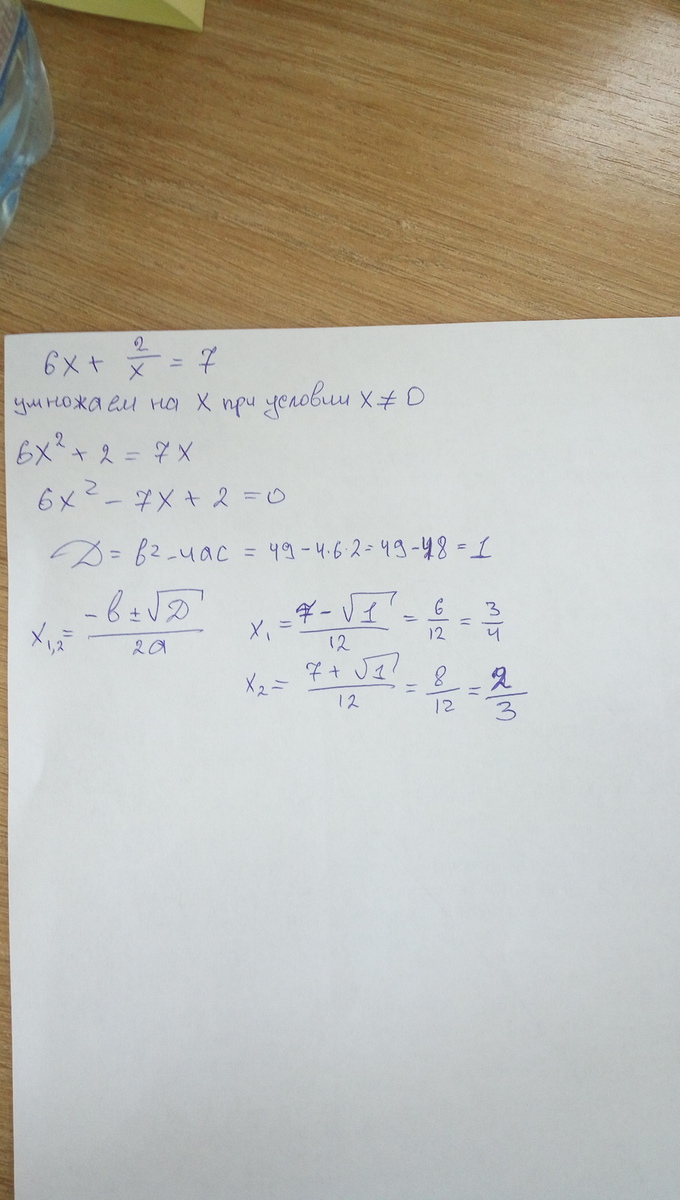 6x + 2/x = 7
умножаем на x при условии x ≠ 0
6x² + 2 = 7x
6x² - 7x + 2 = 0
D = b² - 4ac = 49 - 4·6·2 = 49 - 48 = 1
x₁,₂ = (-b ± √D)/2a
x₁ = (7 - √1)/12 = 6/12 = 3/4
x₂ = (7 + √1)/12 = 8/12 = 2/3